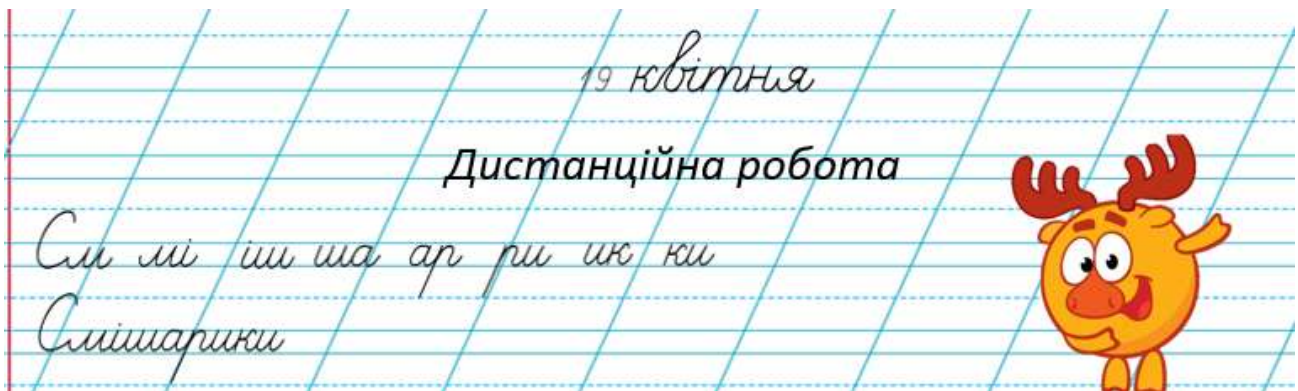 19 квітня
Дистанційна робота
См мі іш ша ар ри ик ки
Смішарики